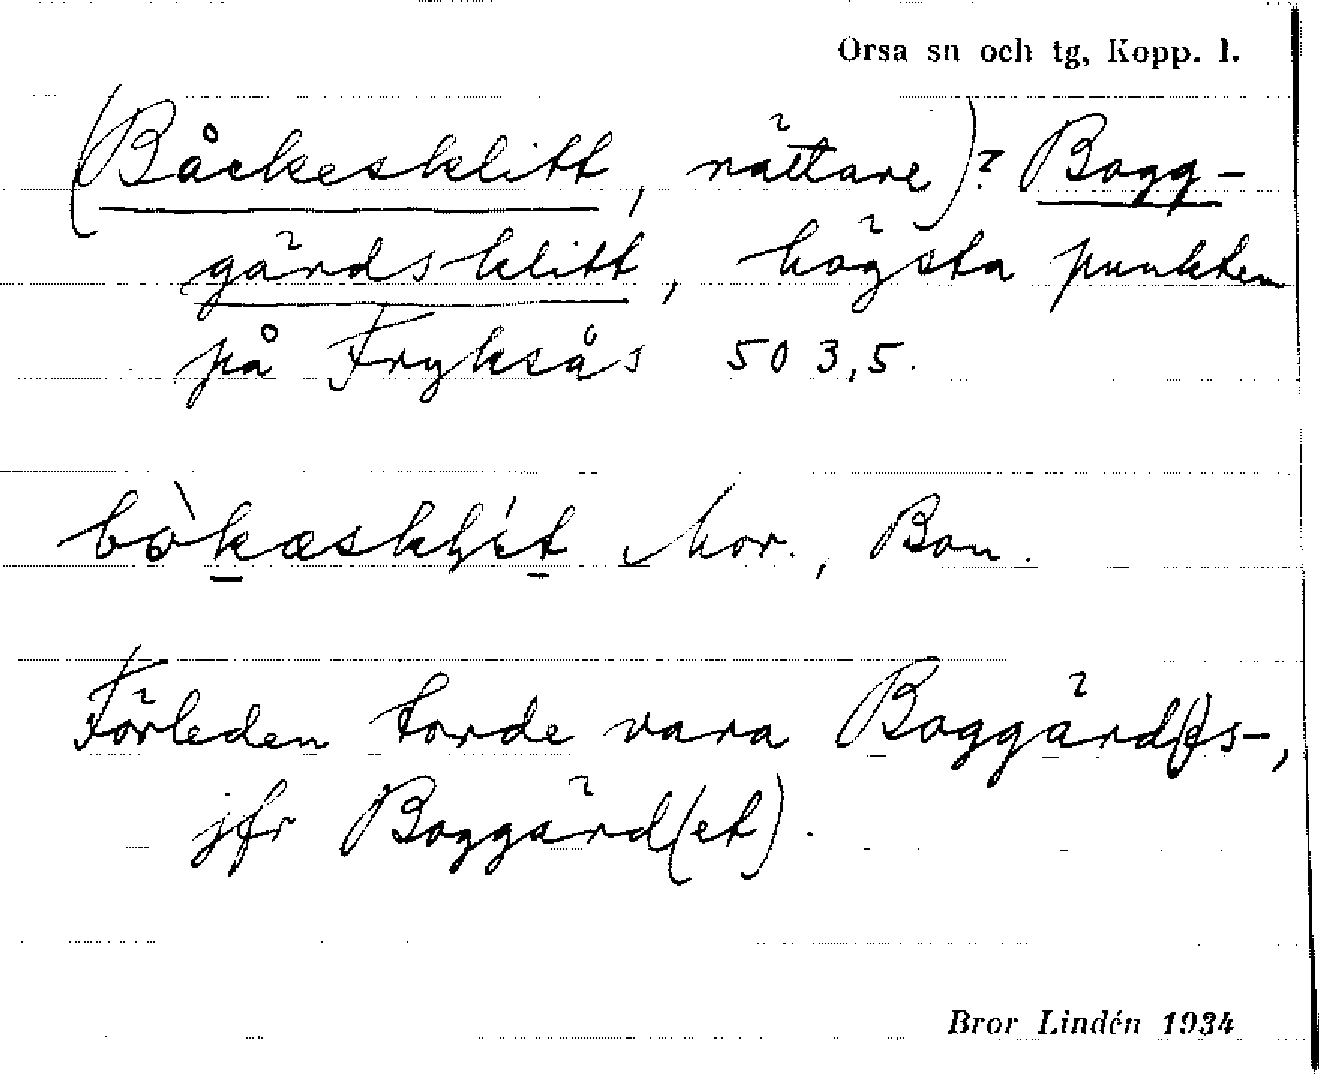 Orsa sn och tg, Kopp. l.
(Båckesklitt, rättare)? Bogg-
gärdsklitt, högsta punkten
på Fryksås 503,5.
Mor., Bon.
Förleden torde vara Boggärd(e)s-,
jfr Boggärd(et).
Bror Lindén 1934